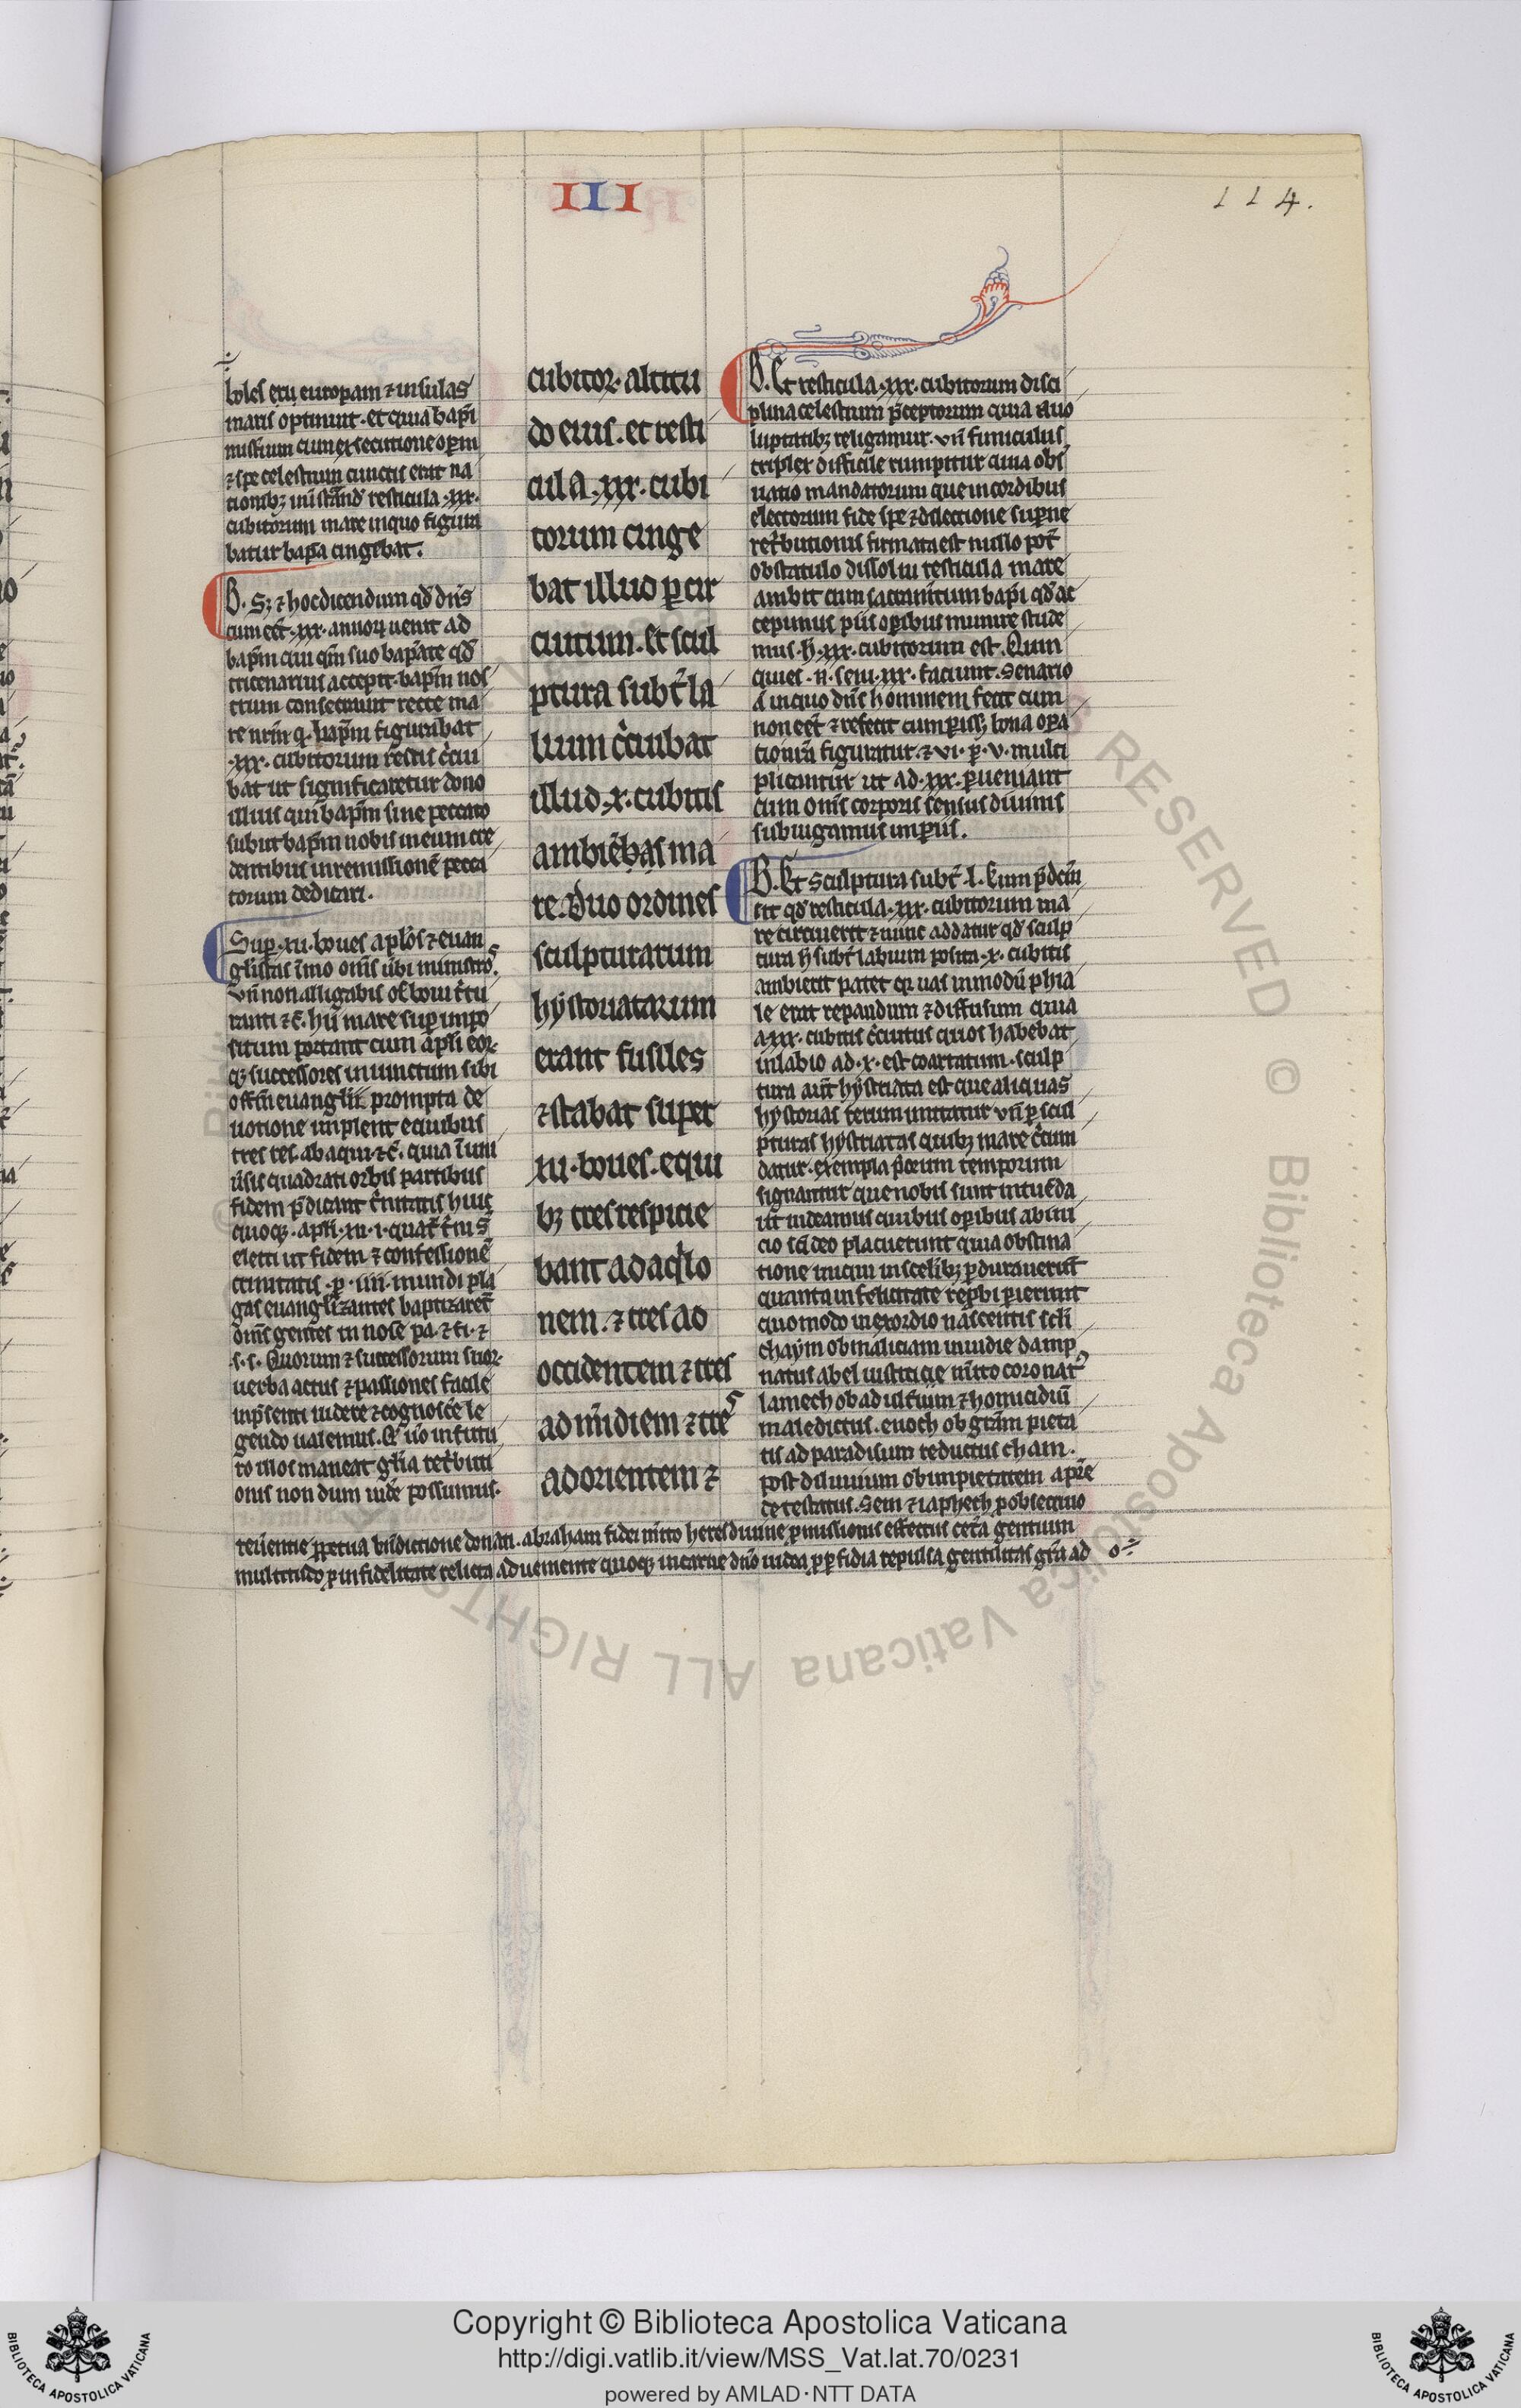 III
114.
boles etiam europam ⁊ insulas
maris optinuit. et quia bap̃i
cubitorum mare in quo figura
batur bap̃a cingebat.
B. Sꝫ ⁊ hoc dicendum qd̃ dñs
cum eẽt .xxx. annoꝝ uenit ad
bap̃m cũi qm̃ suo bap̃ate qd̃
tricenarius accepit. bap̃m nos
trum consecrauit recte ma
re nrm̃ q̃ bap̃m figurabat
.xxx. cubitorum restis c̃cui
bat ut significaretur dono
illius qui bap̃m sine peccato
subiit bap̃m nobis in eum cre
dentibus in remissionẽ pecca
torum dedicari.
Suꝑ .xii. boues apl̃os ⁊ euan
situm portant cum apl̃i eoꝝ
qꝫ successores iniunctum sibi
offm̃ euanglii prompta de
uotione implent e quibus
tres res. ab aqui. ⁊c̃. quia ĩ uni
ũsis quadrati orbis partibus
fidem p̃dicant t̃nitatis huiꝰ
quoqꝫ. apl̃i .xii. i. quat̃ t̃ni s̃
electi ut fidem ⁊ confessionẽ
trinitatis .ꝑ .iiii. mundi pla
gas euanglizantes baptizarẽt
om̃s gentes in noĩe pa. ⁊ fi. ⁊
s. s. Quorum ⁊ successorum suoꝝ
uerba actus ⁊ passiones facile
in p̃senti uidere ⁊ cognosc̃e le
gendo ualemus. Q̃ ũo in futu
ro illos maneat gl̃ia ret̃buti
onis non dum uid̃e possumus.
cubitoꝝ. altitu
do eius. et resti
cula .xxx. cubi
torum cinge
bat illud ꝑ cir
cuitum. et scul
ptura subt̃ la
bium c̃cuibat
illud .x. cubitis
ambiẽbas ma
re. Duo ordines
sculpturarum
hẏstoriatarum
erant fusiles
⁊ stabat super
.xii. boues. e qui
bꝫ tres respicie
bant ad aqͥlo
nem. ⁊ tres ad
occidentem ⁊ tres
ad m̃idiem ⁊ tres
ad orientem ⁊
B. Et resticula .xxx. cubitorum disci
plina celestium p̃ceptorum quia a uo
luptatibꝫ religamur. vñ funiculus
triplex difficile rumpitur quia obs̃
uatio mandatorum que in cordibus
electorum fide spe ⁊ dilectione sup̃ne
ret̃butionis firmata est nullo pot̃
obstaculo dissolui resticula mare
ambit cum sacram̃tum bap̃i qd̃ ac
cepimus piis oꝑibus munire stude
mus. h̃ .xxx. cubitorum est. Quin
quies .n. seni .xxx. faciunt. Senario
a in quo dñs hominem fecit cum
non eẽt ⁊ refecit cum ꝑisꝫ bona oꝑa
tio nr̃a figuratur. ⁊ vi. ꝑ .v. multi
plicantur ut ad .xxx. ꝑueniant
cum om̃s corporis sensus diuinis
subiugamus imꝑiis.
B. Et sculptura subt̃ .l. Cum p̃dc̃m
sit qd̃ resticula .xxx. cubitorum ma
re circuierit ⁊ nunc addatur qd̃ sculp
tura h̃ subt̃ labium posita .x. cubitis
ambierit patet qꝛ uas in modũ phia
le erat repandum ⁊ diffusum quia
a .xxx. cubitis c̃cuitus quos habebat
in labio ad .x. est coartatum. sculp
tura aut̃ hẏstriata est que aliquas
hẏstorias rerum imitatur vñ ꝑ scul
pturas hẏstriatas quibꝫ mare c̃cum
datur. exempla p̃orum temporum
signantur que nobis sunt intuẽda
ut uideamus quibus oꝑibus ab ini
cio sc̃i deo placuerunt qua obstina
tione iniqui in scelibꝫ ꝑdurauerũt
quanta infelicitate rep̃bi ꝑierunt
quomodo in exordio nascentis sc̃li
chaẏm ob maliciam inuidie damp
natus abel iusticie m̃ito coronatꝰ
lamech ob adult̃ium ⁊ homicidiũ
maledictus. enoch ob gr̃am pieta
tis ad paradisum reductus cham.
post diluuium ob impietatem a pr̃e
detestatus. Sem ⁊ iaphech ꝓ obsequio
reũentie ꝑpetua bñdictione donati. abraham fidei m̃ito heres diuine ꝓmissionis effectus cet̃a gentium
multitudo ꝓ infidelitate relicta adueniente quoqꝫ in carne dño iudea ꝓ ꝑfidia repulsa gentilitas gr̃a ad
Copyright © Biblioteca Apostolica Vaticana
http://digi.vatlib.it/view/MSS_Vat.lat.70/0231
powered by AMLAD·NTT DATA
BIBLIOTECA APOSTOLICA VATICANA
BIBLIOTECA APOSTOLICA VATICANA
© Biblioteca Apostolica Vaticana ALL RIGHTS RESERVED